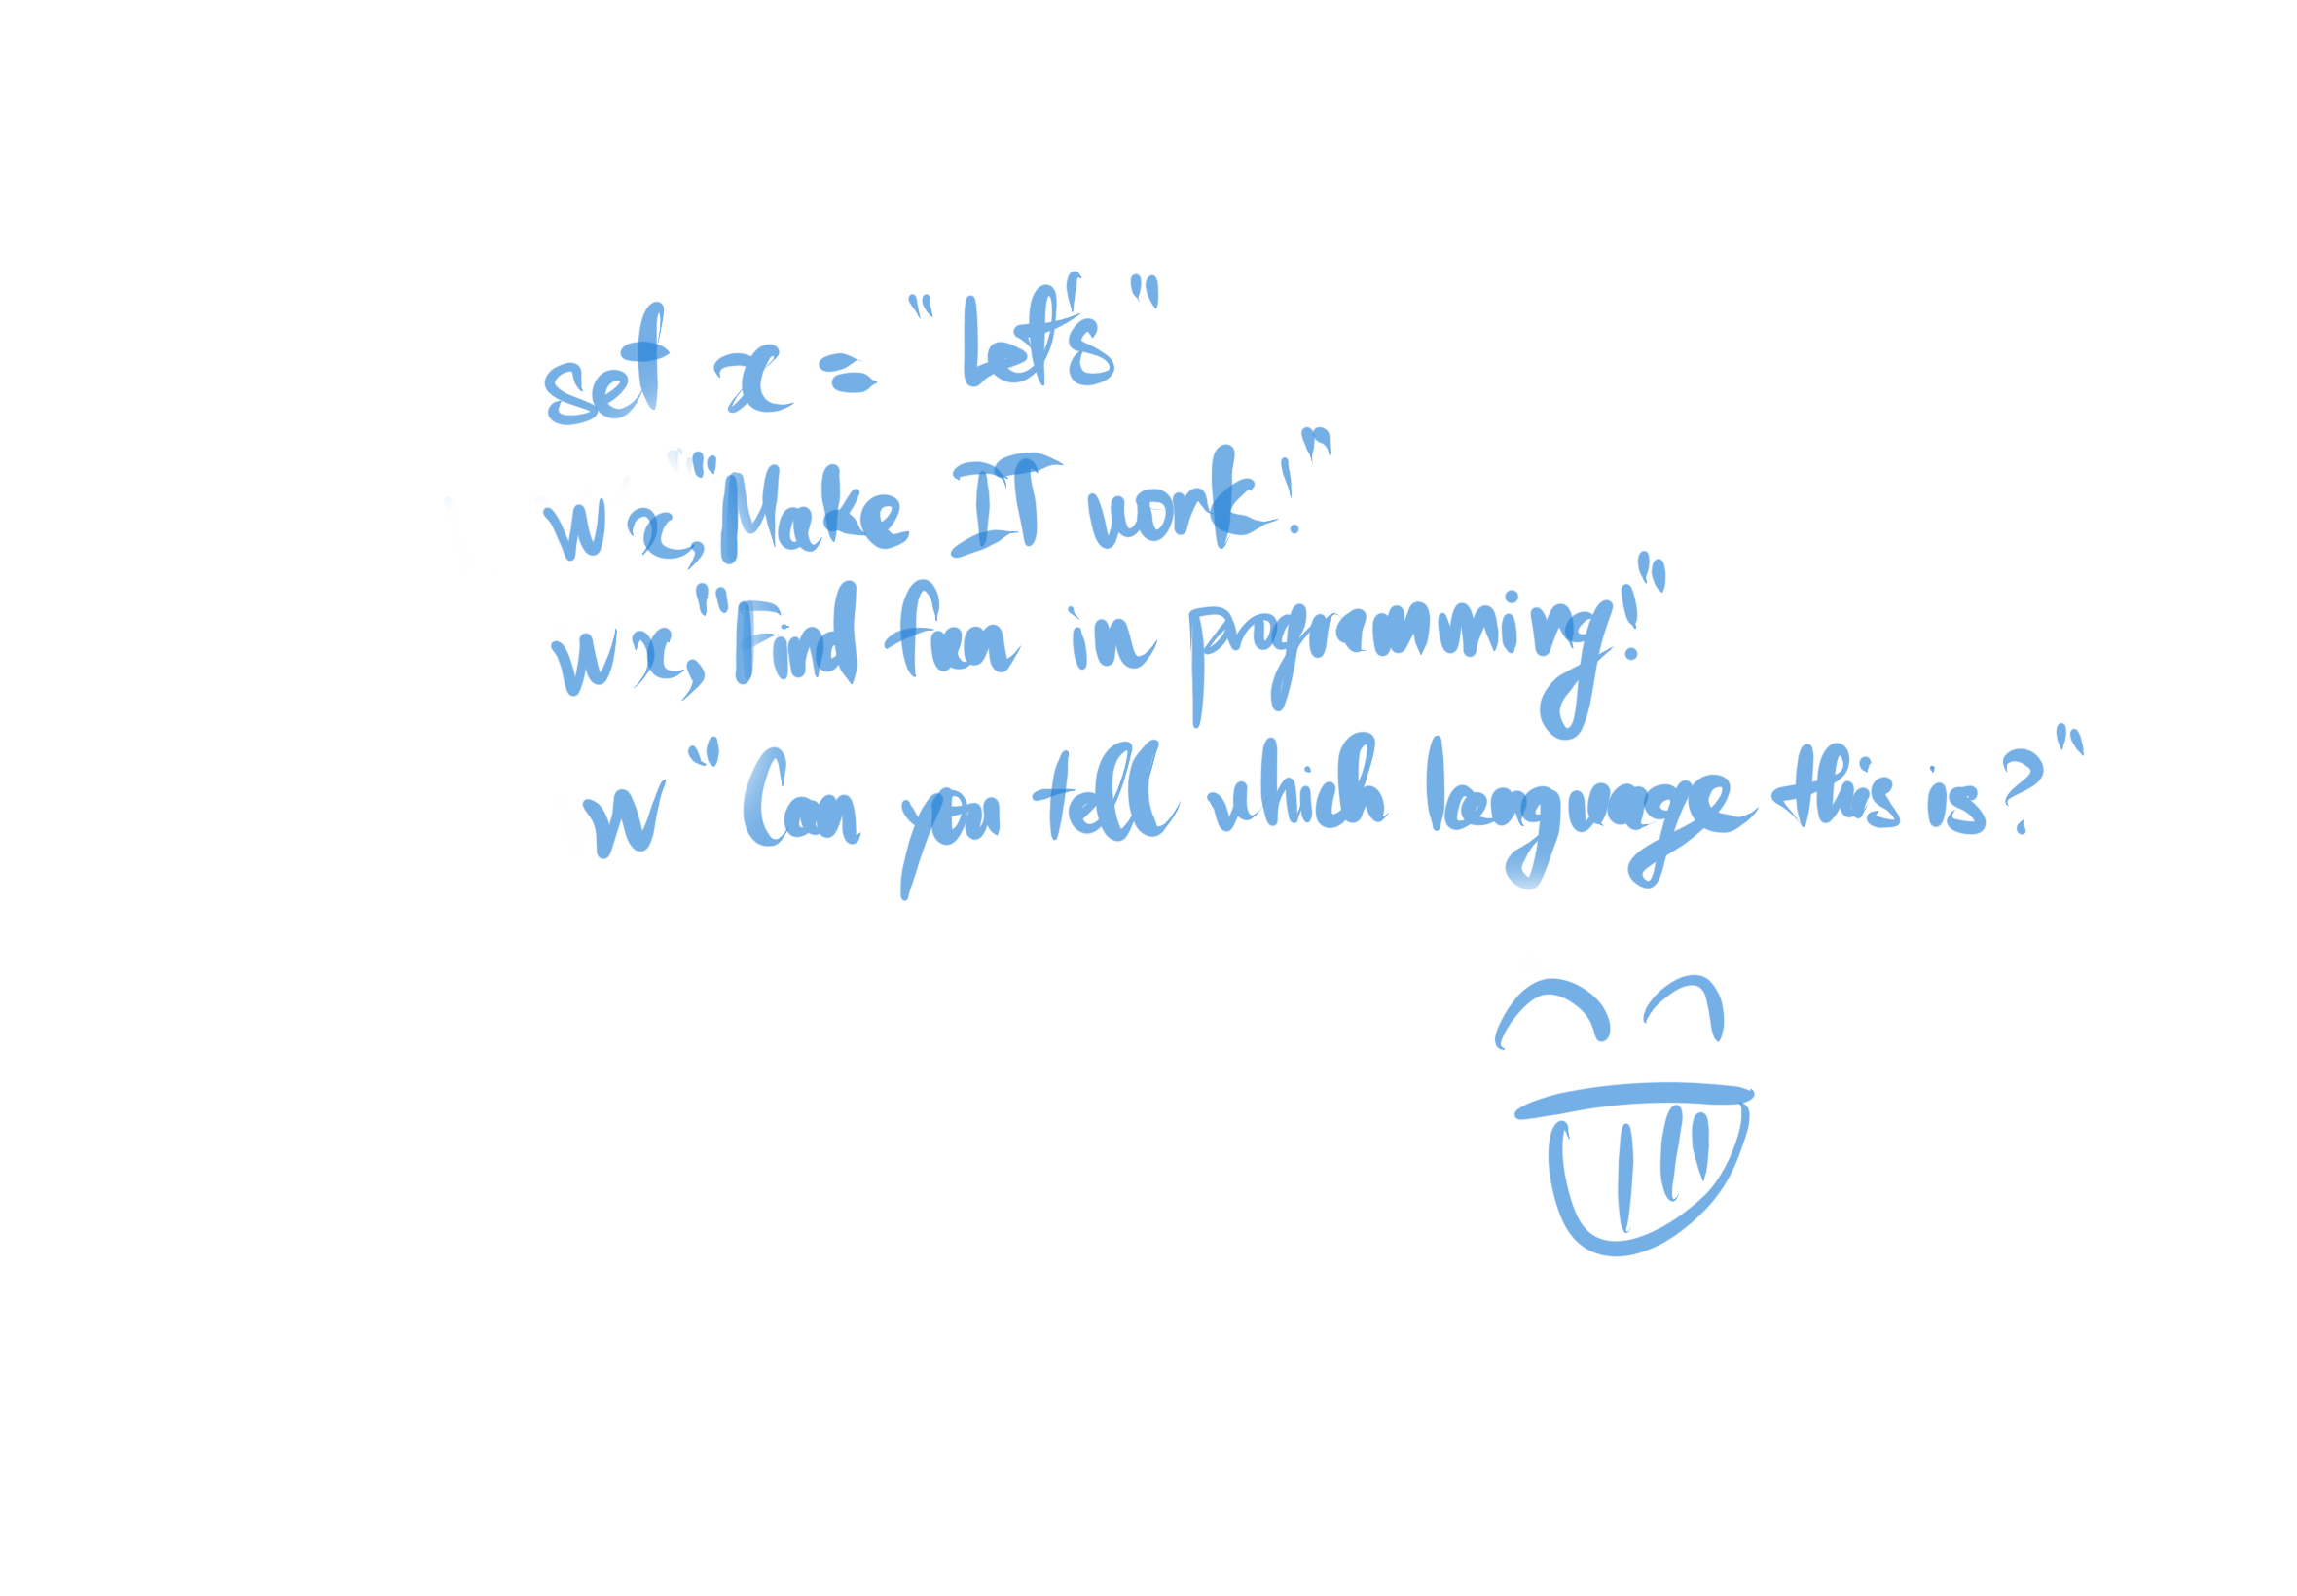 set x = "let's"
w x,"Make IT work!"
w x,"Find fun in programming!"
w "Can you tell which language this is?"